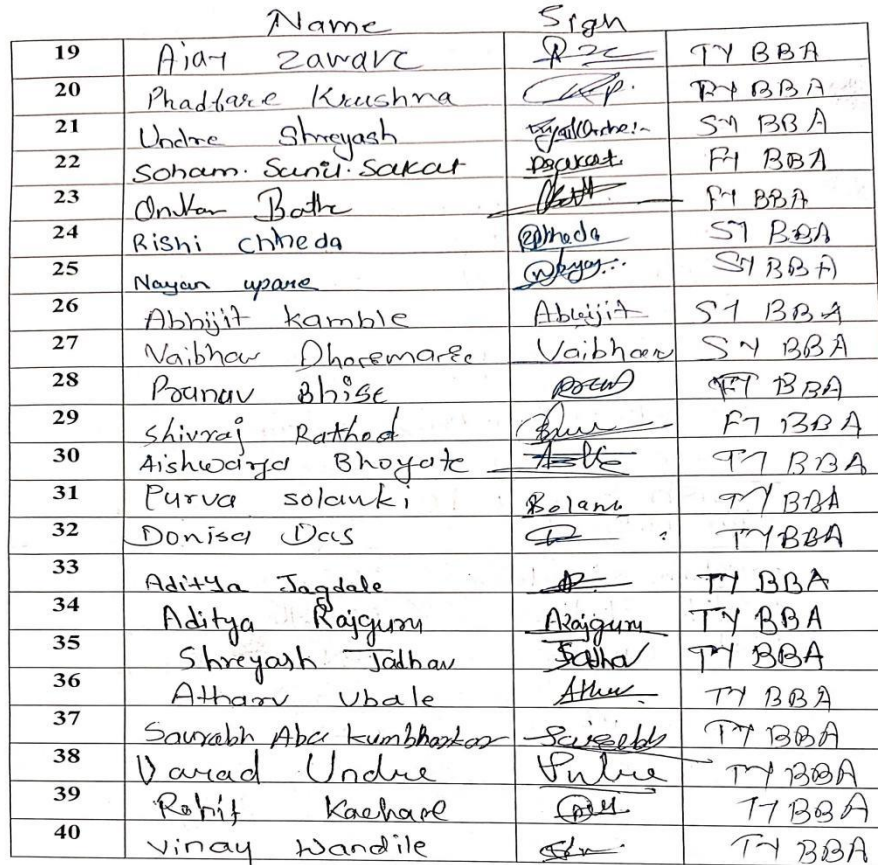 Name Sign
19 Ajay Zaware TY BBA
20 Phadtare Krushna TY BBA
21 Undre Shreyash SY BBA
22 Soham. Sunil. Sakat FY BBA
23 Onkar Bathe FY BBA
24 Rishi chheda SY BBA
25 Nayan upare SY BBA
26 Abhijit kamble Abhijit SY BBA
27 Vaibhav Vaibhav SY BBA
28 Pranav Bhise FY BBA
29 Shivraj Rathod FY BBA
30 Aishwarya Bhoyate TY BBA
31 Purva solanki TY BBA
32 Donisa Das TY BBA
33 Aditya Jagdale TY BBA
34 Aditya Rajguru ARajguru TY BBA
35 Shreyash Jadhav TY BBA
36 Atharv Ubale TY BBA
37 Saurabh Aba Kumbharkar TY BBA
38 Varad Undre Undre TY BBA
39 Rohit Kachare TY BBA
40 Vinay Wandile TY BBA